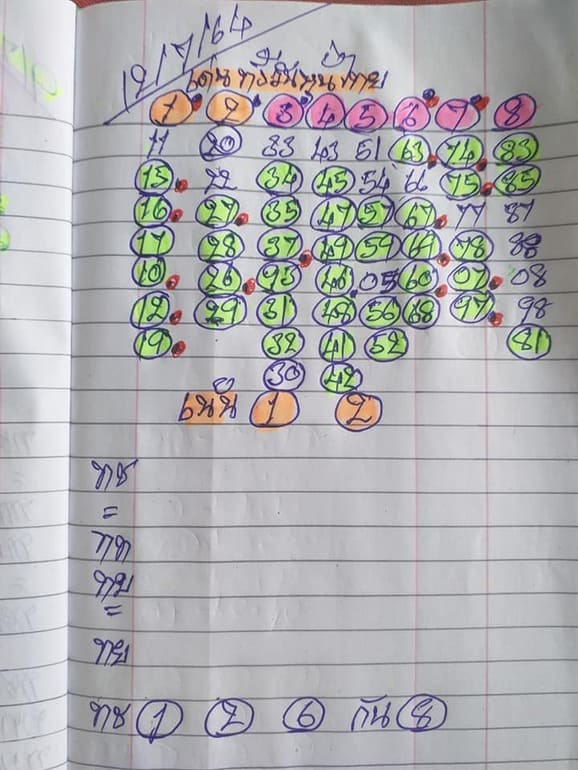 12/7/64
เด่นทั้งวันหุ้นไทย
1 2 3 4 5 6 7 8
11 20 33 43 51 63 74 83
15 22 34 45 54 66 75 85
16 27 35 47 57 67 77 87
17 28 37 49 59 69 78 88
10 26 93 46 05 60 07 08
12 29 31 48 56 68 97 98
19 32 41 52 81
30 42
เน้น 1 2
=
=
1 7 6 กัน 8